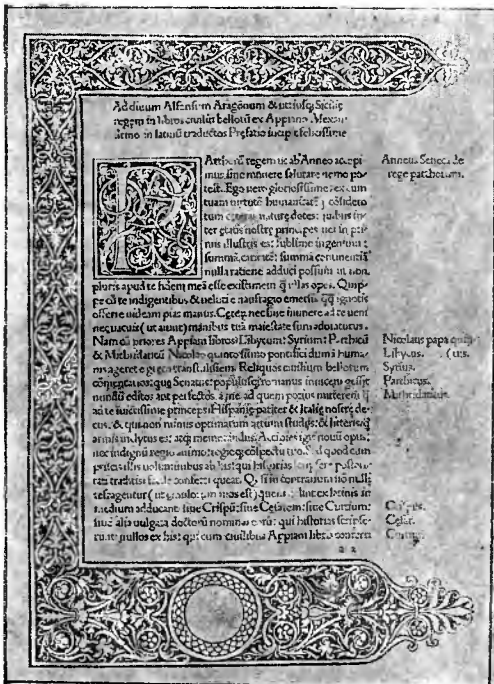 Ad diuum Alfonsum Aragonum & utriusq; Sicilię
regem in libros ciuiliũ bellorũ ex Appiano Alexan
drino in latinũ traductos Pręfatio incipit felicissime
PArthorũ regem ut ab Anneo accepi
mus sine munere salutare nemo po
test. Ego uero gloriosissime rex cum
tuam uirtutẽ humanitatẽ
tum cęteras naturę dotes: quibus in
ter ętatis nostrę principes
illustris es: sublime ingenium:
summã summã continentiã
nulla ratione adduci possum ut non
pluris apud te fidem meã esse existimem q̃ ullas opes. Quip
pe cũ te indigentibus & ueluti e naufragio emersis ignotis
offerre uideam pias manus. Cęterũ nec sine munere ad te ueni
nec uacuis (ut aiunt) manibus tuã maiestatẽ sum adoraturus.
Nam cũ priores Appiani libros: Libycum: Syrium: Parthicũ
& Mithridaticũ Nicolao quinto summo pontifici dum ĩ huma
nis ageret e gręco transtulissem. Reliquos ciuilium bellorum
cõmentarios: quę Senatus: populusq; romanus inuicem gessit
nondũ editos aut perfectos a me. ad quem potius mitterem q̃
ad te inuictissime princeps Hispanię pariter & Italię nostrę de-
cus. & qui non minus optimarum artium studiis: & litteris q̃
armis inclytus es: Accipies igitur nouũ opus:
nec indignũ regio animo
uoluminibus ab his: qui historias
ram traditis
si in contrarium nõ nulli
(ut) latinis in
medium adducant siue Crispũ: siue Cęsarem: siue Curtium:
siue alia uulgata doctorũ nomina: qui historias scripse-
runt: nullos ex his: qui cum ciuilibus Appiani libris conferri
a 2
Anneus Seneca de
rege parthorum.
Nicolaus papa quin
Libycus. (tus.
Syrius.
Parthicus.
Mithridaticus.
Crispus.
Cęsar.
Curtius.